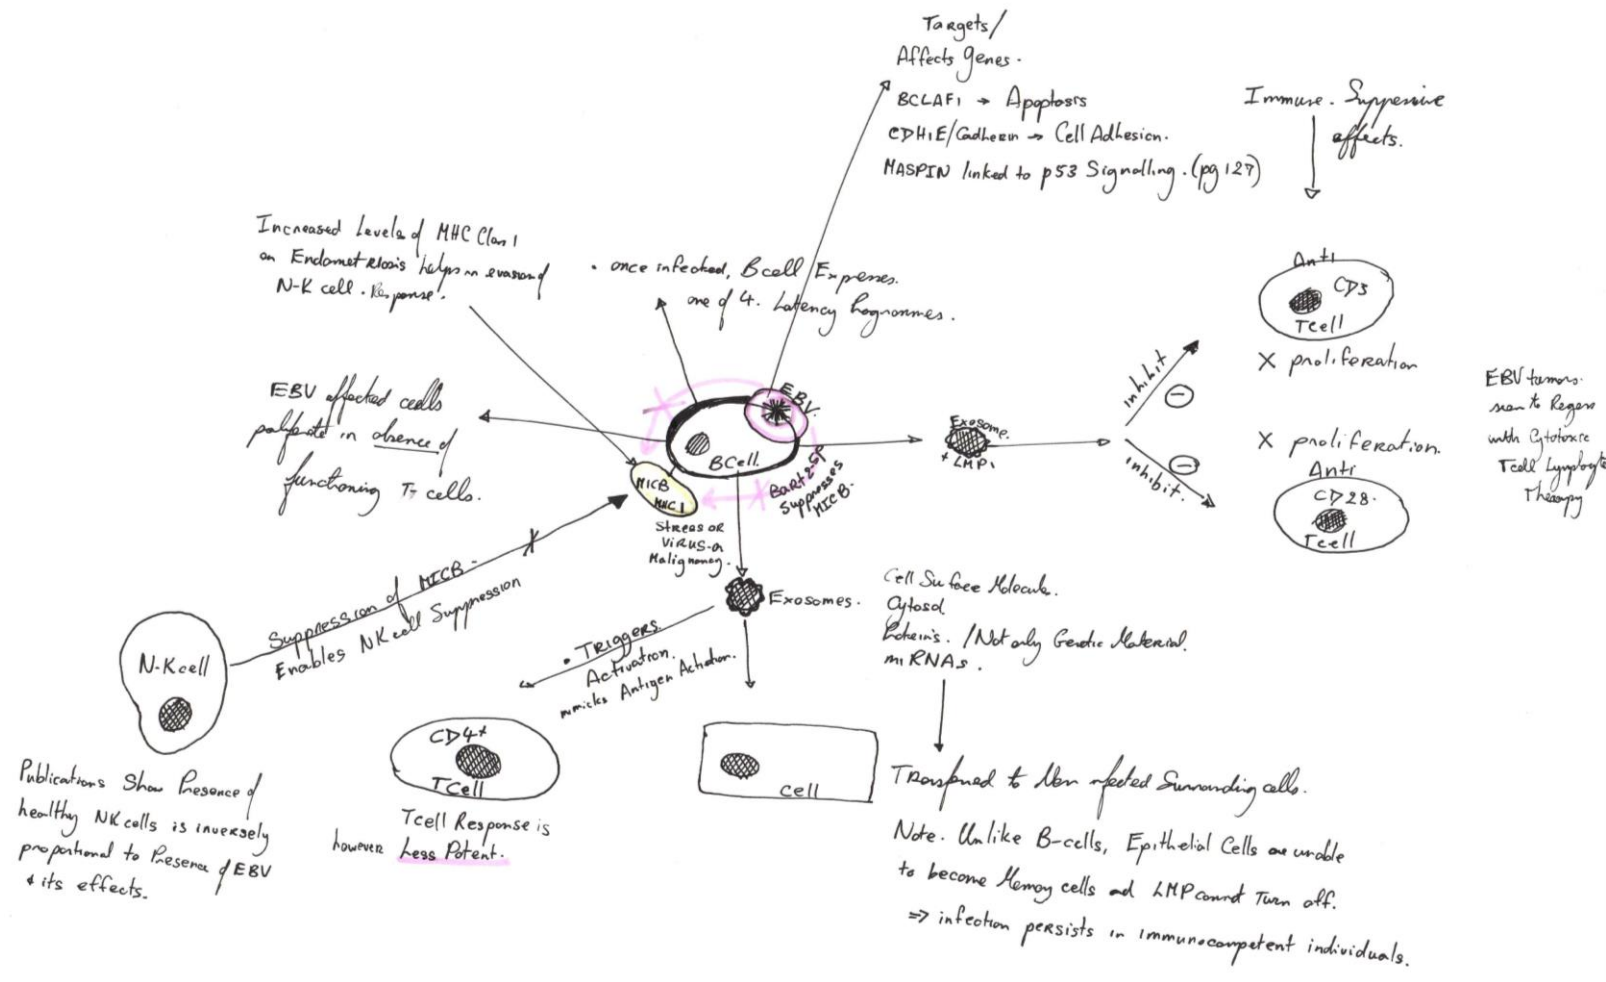 Targets/
Affects Genes.
BCLAF1 → Apoptosis
CDH1E/Cadherin → Cell Adhesion.
MASPIN linked to p53 Signalling. (pg 127)
Immune. Suppressive
effects.
Increased Levels of MHC Class 1
on Endometriosis helps in evasion of
N-K cell. Response.
• once infected, B cell Expresses.
one of 4. Latency Programmes.
EBV affected cells
proliferate in absence of
functioning T- cells.
EBV.
BCell.
MICB
MHC 1
BART2-5P
Suppresses
MICB.
Stress or
Virus-or
Malignancy.
Exosome.
+ LMP1
inhibit
inhibit.
Anti
CD3
Tcell
X proliferation
X proliferation.
Anti
CD28.
Tcell
EBV tumors.
seen to Regress
with Cytotoxic
Tcell Lymphocyte
Therapy
Suppression of MICB-
Enables NK cell Suppression
N-K cell
Publications Show Presence of
healthy NK cells is inversely
proportional to Presence of EBV
& its effects.
Exosomes.
• Triggers
Activation.
mimicks Antigen Activation.
CD4+
TCell
Tcell Response is
however Less Potent.
cell
Cell Surface Molecule.
Cytosol
Protein's. /Not only Genetic Material.
miRNAs.
Transferred to Non infected Surrounding cells.
Note. Unlike B-cells, Epithelial Cells are unable
to become Memory cells and LMP cannot Turn off.
⇒ infection persists in immunocompetent individuals.